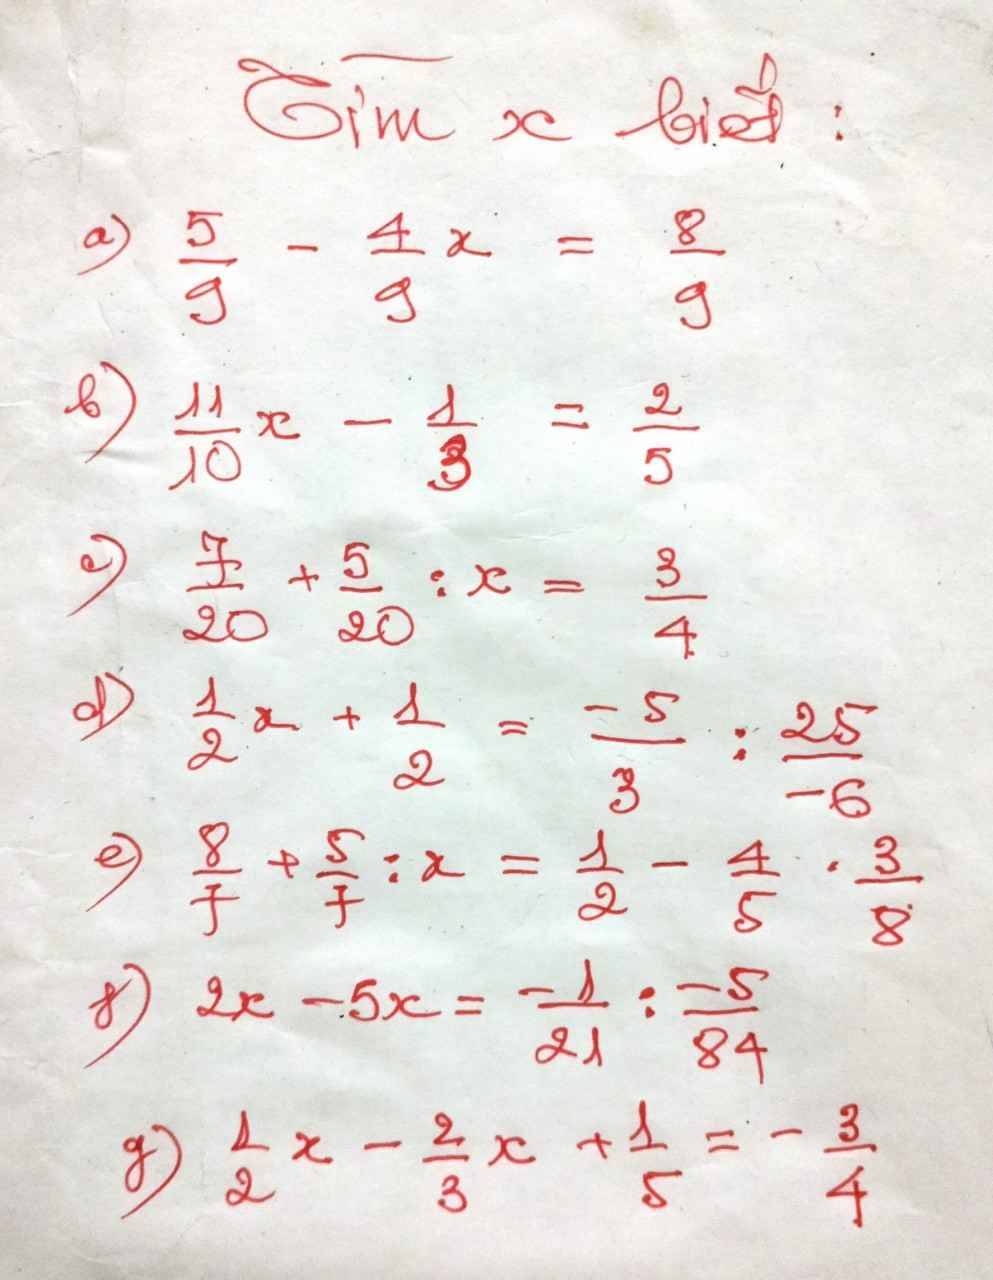 Tìm x biết :
a) 5/9 - 4/9 x = 8/9
b) 11/10 x - 1/3 = 2/5
c) 7/20 + 5/20 : x = 3/4
d) 1/2 x + 1/2 = -5/3 : 25/-6
e) 8/7 + 5/7 : x = 1/2 - 4/5 . 3/8
f) 2x - 5x = -1/21 : -5/84
g) 1/2 x - 2/3 x + 1/5 = - 3/4